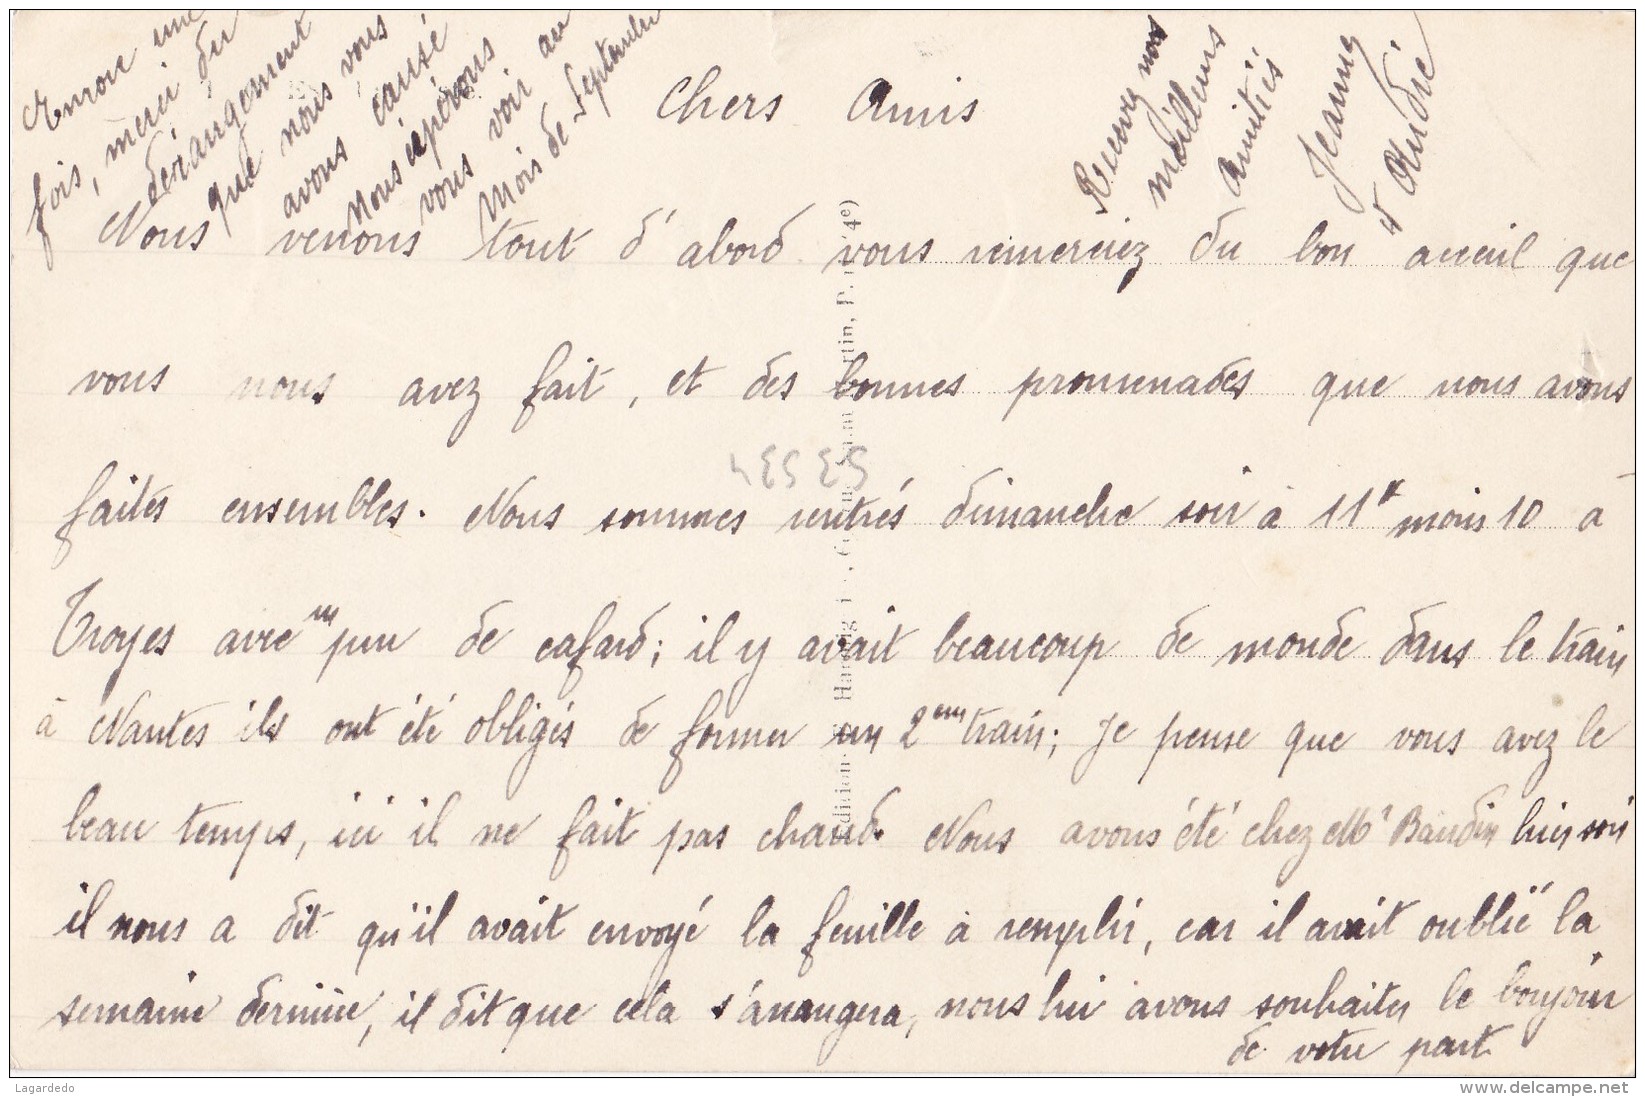 Chers Amis
Nous venons tout d'abord vous remerciez du bon acceuil que
vous nous avez fait, et des bonnes promenades que nous avons
faites ensembles. Nous sommes rentrés dimanche soir à 11h moins 10 à
Troyes avec un peu de cafard; il y avait beaucoup de monde dans le train
à Nantes ils ont été obligés de former un 2em train; Je pense que vous avez le
beau temps, ici il ne fait pas chaud. Nous avons été chez Mr Baudin hier soir
il nous a dit qu'il avait envoyé la feuille à remplir, car il avait oublié la
semaine dernière, il dit que cela s'arrangera, nous lui avons souhaiter le bonjour
de votre part.
Encore une
fois, merci du
dérangement
que nous vous
avons causé
Nous espérons
vous voir au
Mois de Septembre
Recevez nos
meilleurs
Amitiés
Jeanne
et André
53534
Lagardedo
www.delcampe.net